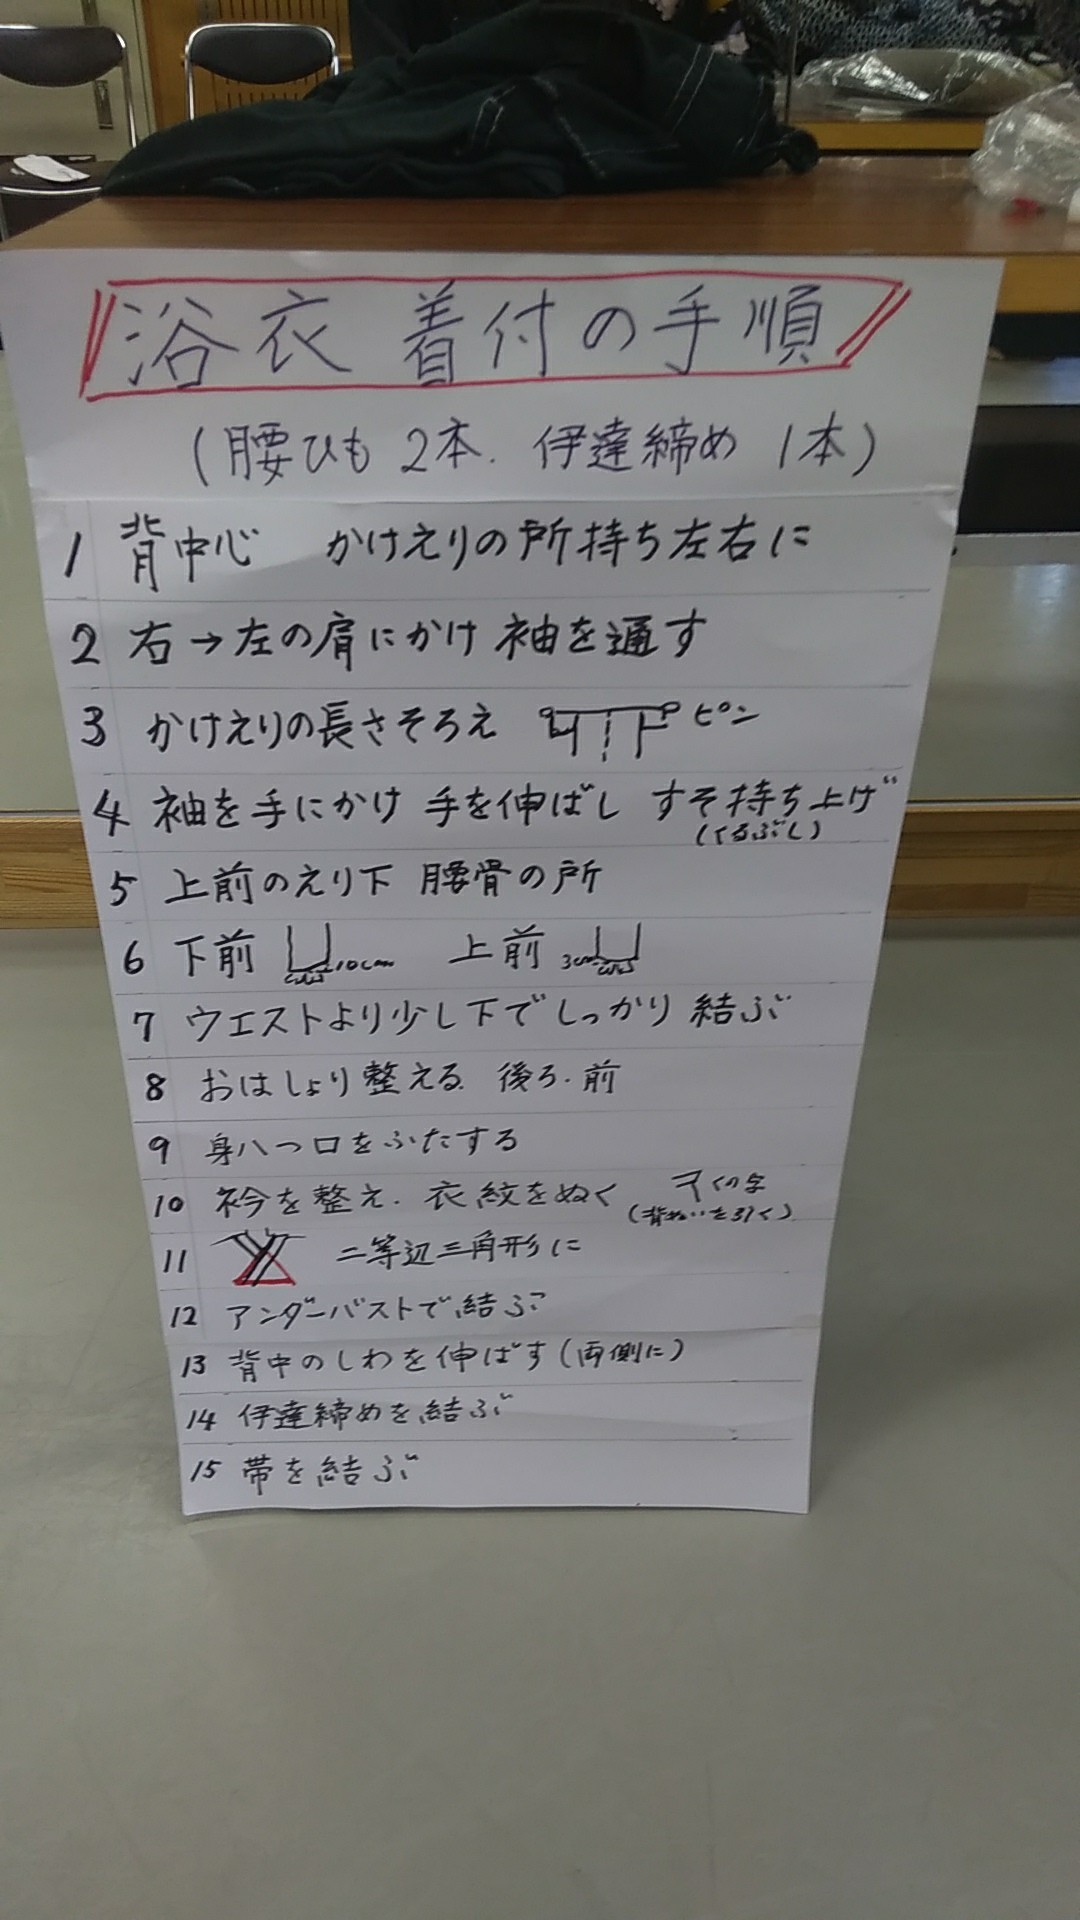 浴衣 着付の手順
(腰ひも 2本. 伊達締め 1本)
1 背中心 かけえりの所持ち左右に
2 右→左の肩にかけ 袖を通す
3 かけえりの長さそろえ ピン
4 袖を手にかけ 手を伸ばし すそ持ち上げ
(くるぶし)
5 上前のえり下 腰骨の所
6 下前 10cm 上前 3cm
7 ウエストより少し下でしっかり結ぶ
8 おはしょり整える 後ろ.前
9 身八つ口をふたする
10 衿を整え. 衣紋をぬく くの字
(背ぬいを引く)
11 二等辺三角形に
12 アンダーバストで結ぶ
13 背中のしわを伸ばす(両側に)
14 伊達締めを結ぶ
15 帯を結ぶ